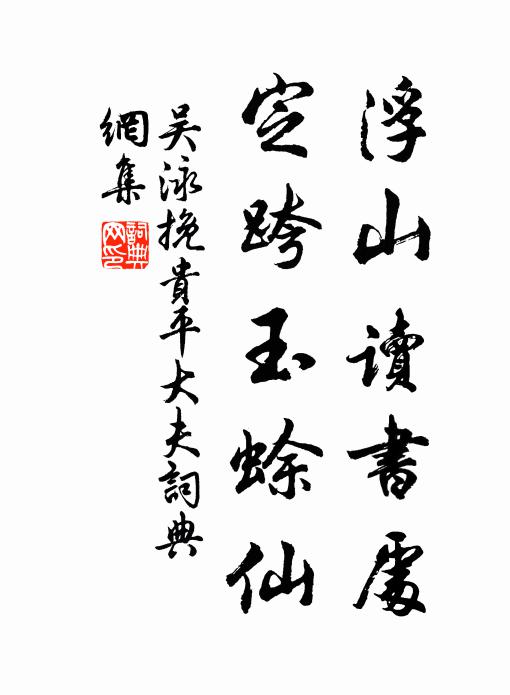 浮山讀書處
定跨玉蜍仙
吴泳挽貴平大夫詞典
網集
詞典網印